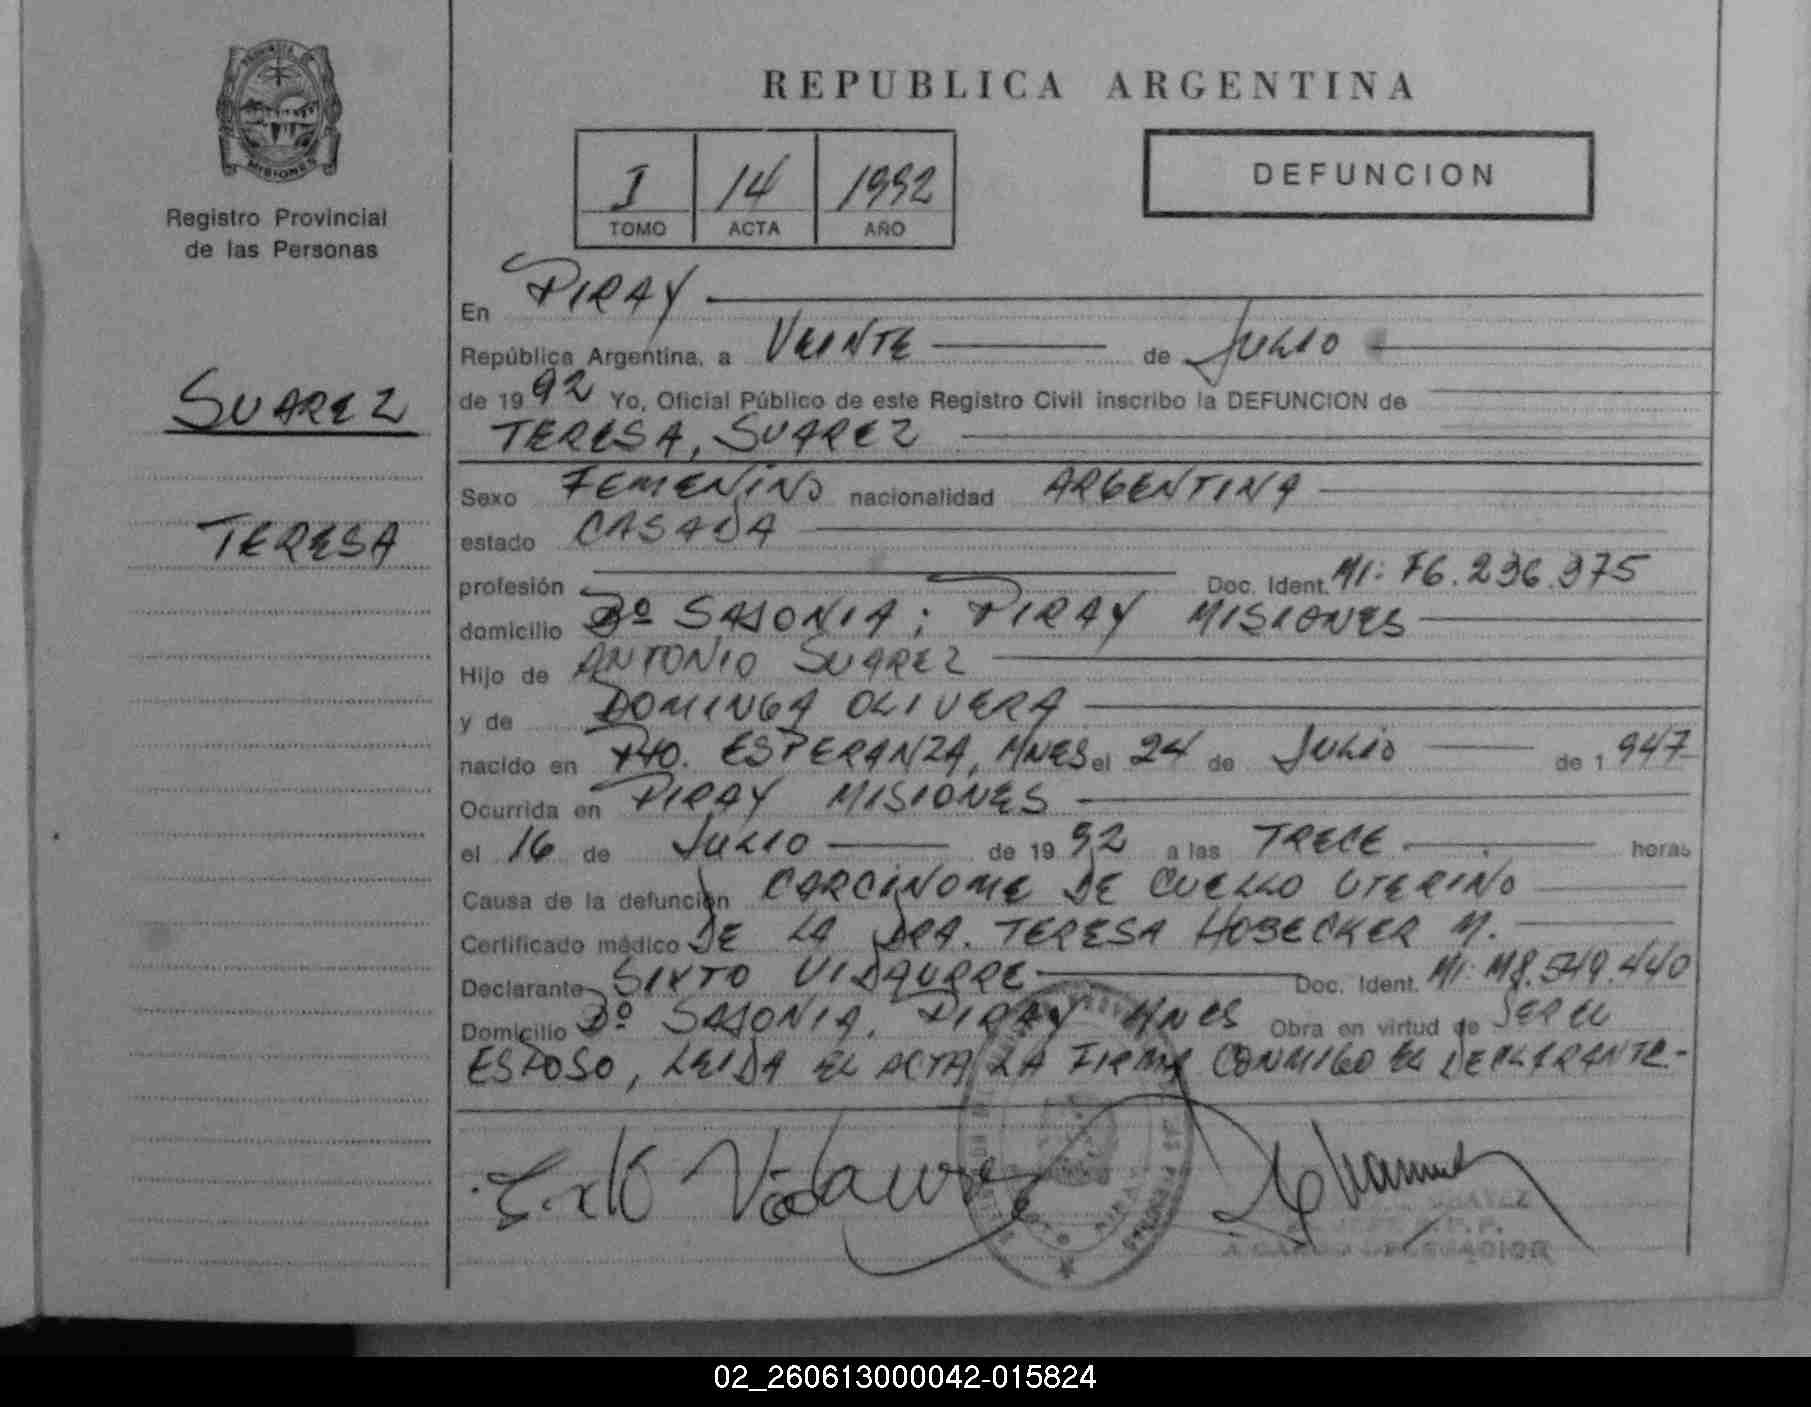 PROVINCIA
MISIONES
Registro Provincial
de las Personas
SUAREZ
TERESA
REPUBLICA ARGENTINA
I 14 1992
TOMO ACTA AÑO
DEFUNCION
En PIRAY
República Argentina, a VEINTE de JULIO
de 1992 Yo, Oficial Público de este Registro Civil inscribo la DEFUNCION de
TERESA, SUAREZ
Sexo FEMENINO nacionalidad ARGENTINA
estado CASADA
profesión Doc. Ident. MI: F6.236.375
domicilio Bº SAJONIA; PIRAY MISIONES
Hijo de ANTONIO SUAREZ
y de DOMINGA OLIVERA
nacido en PTO. ESPERANZA, MNES el 24 de JULIO de 1947
Ocurrida en PIRAY MISIONES
el 16 de JULIO de 1992 a las TRECE horas
Causa de la defunción CARCINOMA DE CUELLO UTERINO
Certificado médico DE LA DRA. TERESA HOBECKER M.
Declarante SIXTO VIDAURRE Doc. Ident. MI: M8.549.440
Domicilio Bº SAJONIA. PIRAY MNES Obra en virtud de SER EL
ESPOSO, LEIDA EL ACTA LA FIRMA CONMIGO EL DECLARANTE-
Sixto Vidaurre
CHAVEZ
PIRAY
02_260613000042-015824